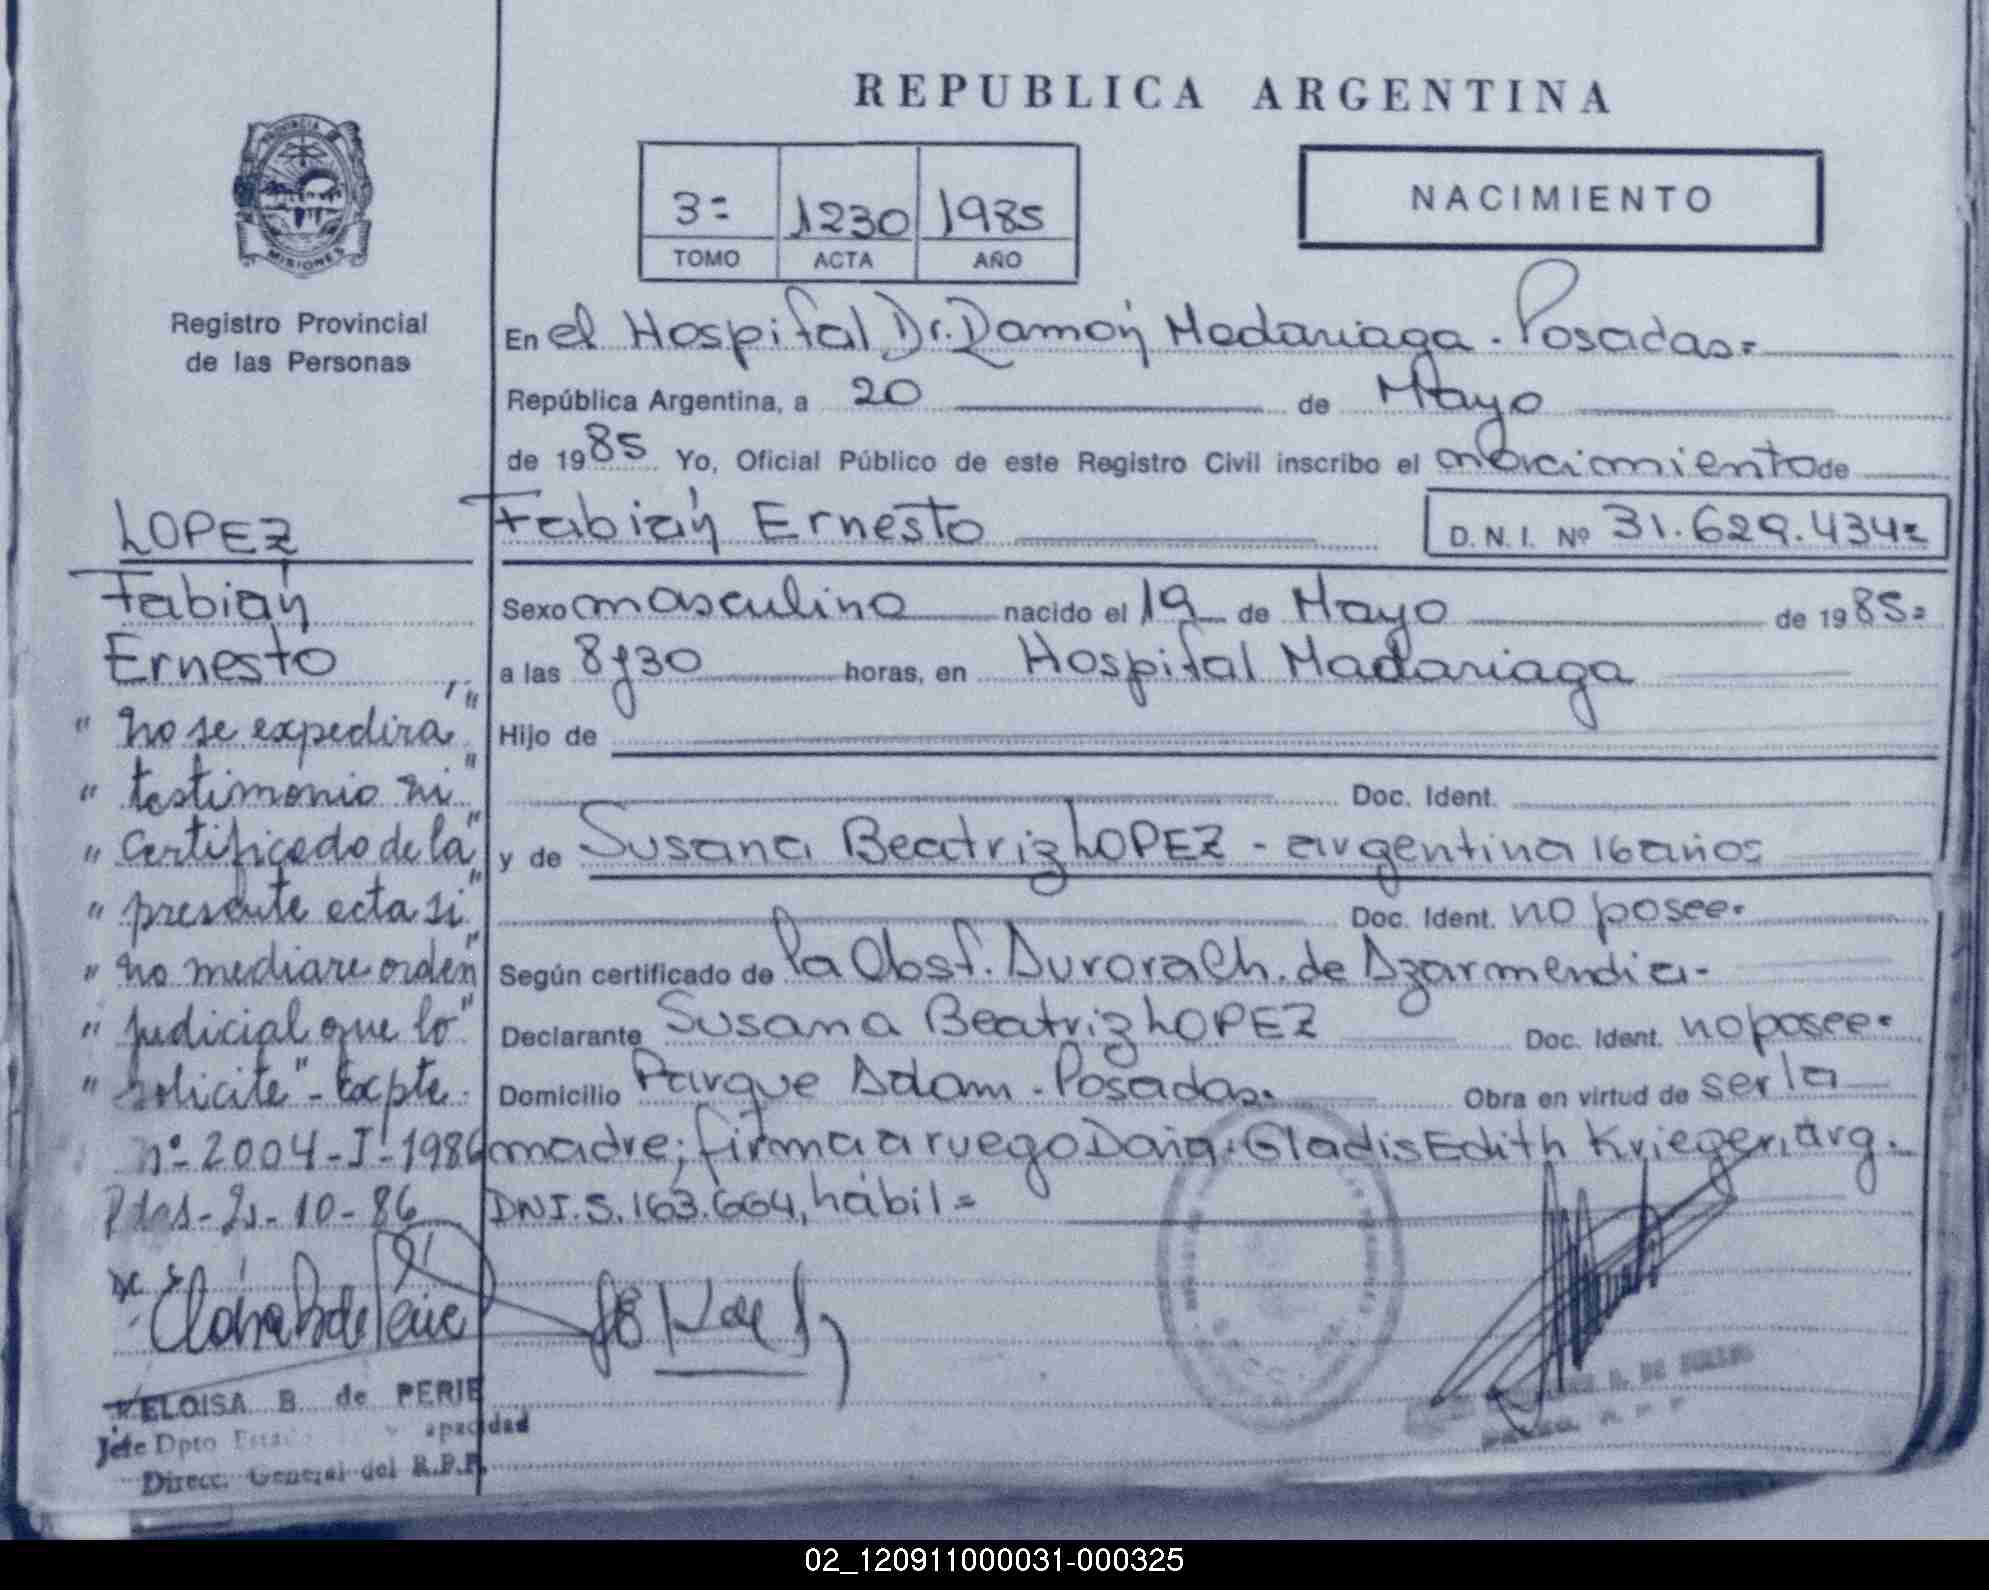 REPUBLICA ARGENTINA
PROVINCIA DE
MISIONES
Registro Provincial
de las Personas
3=
1230
1985
TOMO
ACTA
AÑO
NACIMIENTO
En el Hospital Dr. Ramón Madariaga - Posadas=
República Argentina, a 20 de Mayo
de 1985 Yo, Oficial Público de este Registro Civil inscribo el nacimiento de
Fabián Ernesto D.N.I. Nº 31.629.434=
Sexo masculino nacido el 19 de Mayo de 1985=
a las 8y30 horas, en Hospital Madariaga
Hijo de
Doc. Ident.
y de Susana Beatriz LOPEZ - argentina 16 años
Doc. Ident. no posee.
Según certificado de la Obst. Aurora Ch. de Azarmendia-
Declarante Susana Beatriz LOPEZ Doc. Ident. no posee.
Domicilio Parque Adam - Posadas. Obra en virtud de ser la
madre; firma a ruego Doña: Gladis Edith Krieger, arg.
DNI.5.163.664, hábil=
LOPEZ
Fabián
Ernesto
" no se expedira "
" testimonio ni "
" Certificado de la "
" presente acta si "
" no mediare orden "
" judicial que lo "
" solicite" - Expte.
nº 2004-I-1986
Pdas- 21-10-86
ELOISA B. de PERIE
Jefe Dpto Estado y apacidad
Direcc. General del R.P.P.
02_120911000031-000325